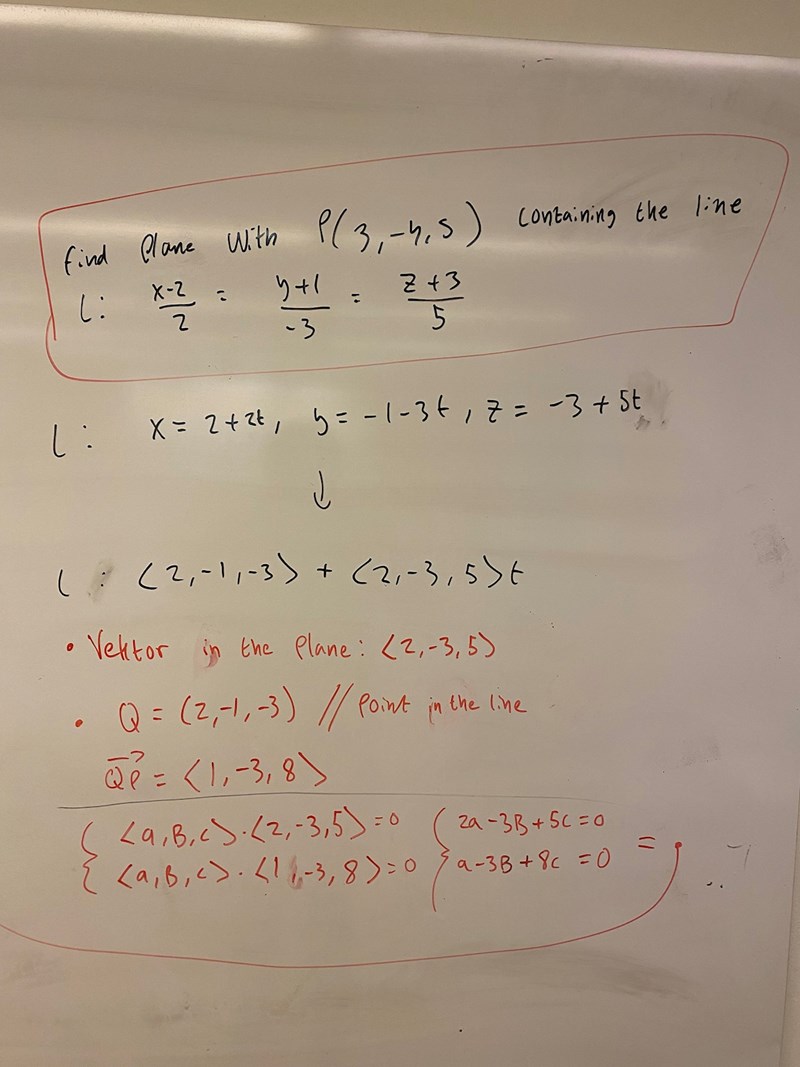 find Plane With P(3,-4,5) Containing the line
L: x-2/2 = y+1/-3 = z+3/5
L: x = 2+2t, y = -1-3t, z = -3+5t
↓
L: ⟨2,-1,-3⟩ + ⟨2,-3,5⟩t
• Vektor in the Plane: ⟨2,-3,5⟩
• Q = (2,-1,-3) // Point in the line
QP = ⟨1,-3,8⟩
{ ⟨a,B,c⟩·⟨2,-3,5⟩=0 { 2a-3B+5c=0
{ ⟨a,B,c⟩·⟨1,-3,8⟩=0 { a-3B+8c=0 =